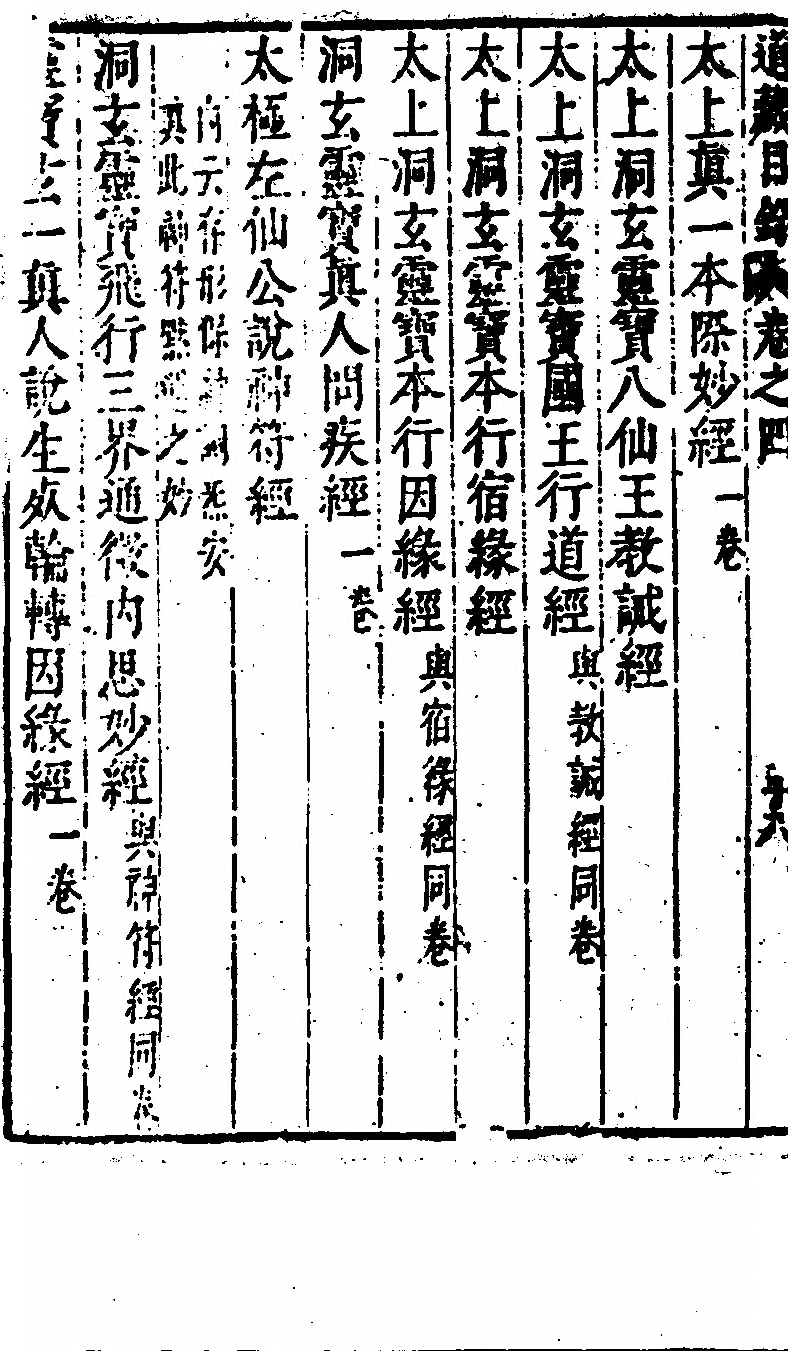 道藏目錄 卷之四
太上眞一本際妙經一卷
太上洞玄靈寶八仙王教誡經
太上洞玄靈寶國王行道經與教誡經同卷
太上洞玄靈寶本行宿緣經
太上洞玄靈寶本行因緣經與宿緣經同卷
洞玄靈寶眞人問疾經一卷
太極左仙公說神符經
內云存形保神 炁安
眞此神符 之妙
洞玄靈寶飛行三界通微內思妙經與神符經同卷
靈寶玄一眞人說生死輪轉因緣經一卷